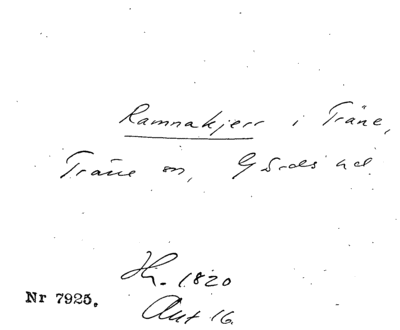 Ramnakjerr i Träne,
Träne sn, Gärds hd.
Hr. 1820
Nr 7925.
Akt 16.